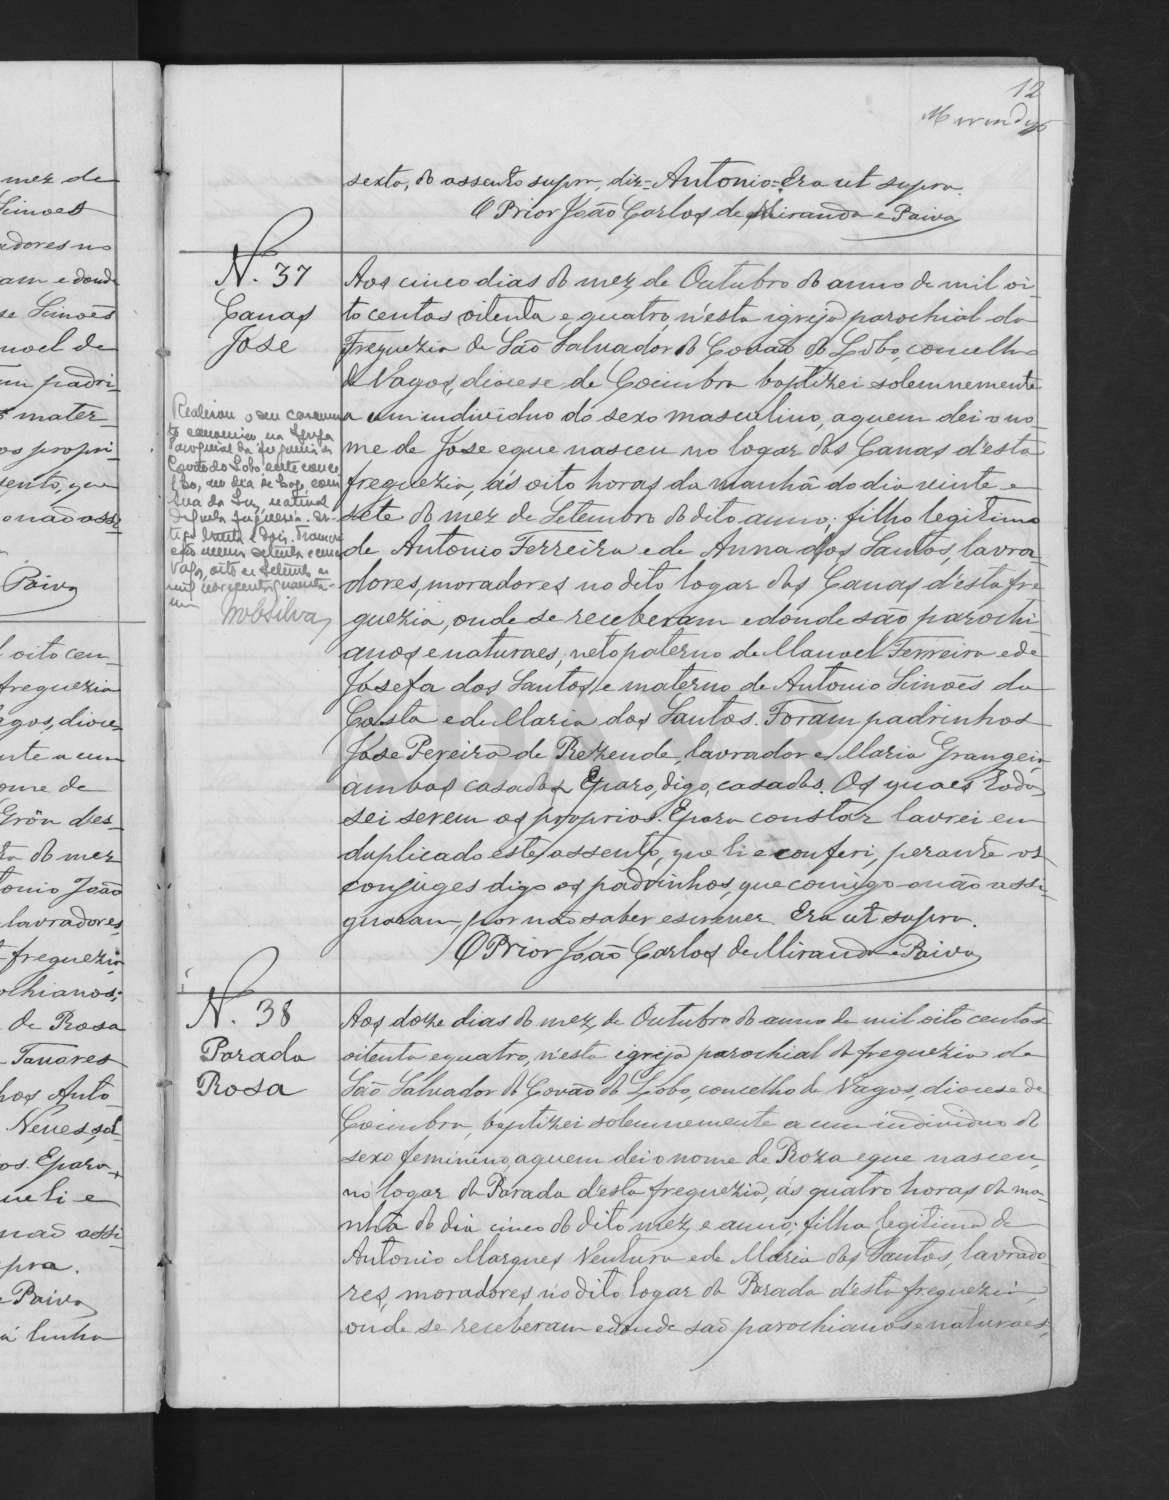 12
sexto, do assento supra, diz = Antonio = Era ut supra.
O Prior João Carlos de Miranda e Paiva
N. 37
Canas
Jose
Aos cinco dias do mez de Outubro do anno de mil oi-
to centos oitenta e quatro, n'esta igreja parochial da
Freguezia de São Salvador do Covão do Lobo, concelho
de Vagos, diocese de Coimbra baptizei solemnemente
a um individuo do sexo masculino, a quem dei o no-
me de Jose e que nasceu no logar das Canas d'esta
freguezia, ás oito horas da manhã do dia vinte e
sete do mez de Setembro do dito anno; filho legitimo
de Antonio Ferreira e de Anna dos Santos, lavra-
dores, moradores no dito logar das Canas d'esta fre-
guezia, onde se receberam e donde são parochi-
anos e naturaes; neto paterno de Manoel Ferreira e de
Josefa dos Santos, e materno de Antonio Simões da
Costa e de Maria dos Santos. Foram padrinhos
Jose Pereira de Rezende, lavrador e Maria Grangeia,
ambos casados, Epara, digo, casados. Os quaes todos
sei serem os proprios. E para constar lavrei em
duplicado este assento, que li e conferi, perante os
conjuges digo os padrinhos, que comigo o não assi-
gnaram, por não saber escrever. Era ut supra.
O Prior João Carlos de Miranda e Paiva
Realizou o seu casamen-
to canonico, na Igreja
Paroquial da freguezia de
Covão do Lobo, este conce-
lho, no dia de hoje com
da Luz, natural
daquela freguezia.
Vagos, oito de Setembro de
mil novecentos quarenta
e um
N. 38
Parada
Rosa
Aos doze dias do mez de Outubro do anno de mil oito centos
oitenta e quatro, n'esta igreja parochial da freguezia de
São Salvador do Covão do Lobo, concelho de Vagos, diocese de
Coimbra, baptizei solemnemente a um individuo do
sexo feminino, a quem dei o nome de Roza e que nasceu,
no logar da Parada d'esta freguezia, ás quatro horas da ma-
nhã do dia cinco do dito mez e anno; filha legitima de
Antonio Marques Ventura e de Maria dos Santos, lavrado-
res, moradores, no dito logar da Parada d'esta freguezia,
onde se receberam e donde são parochianos e naturaes,